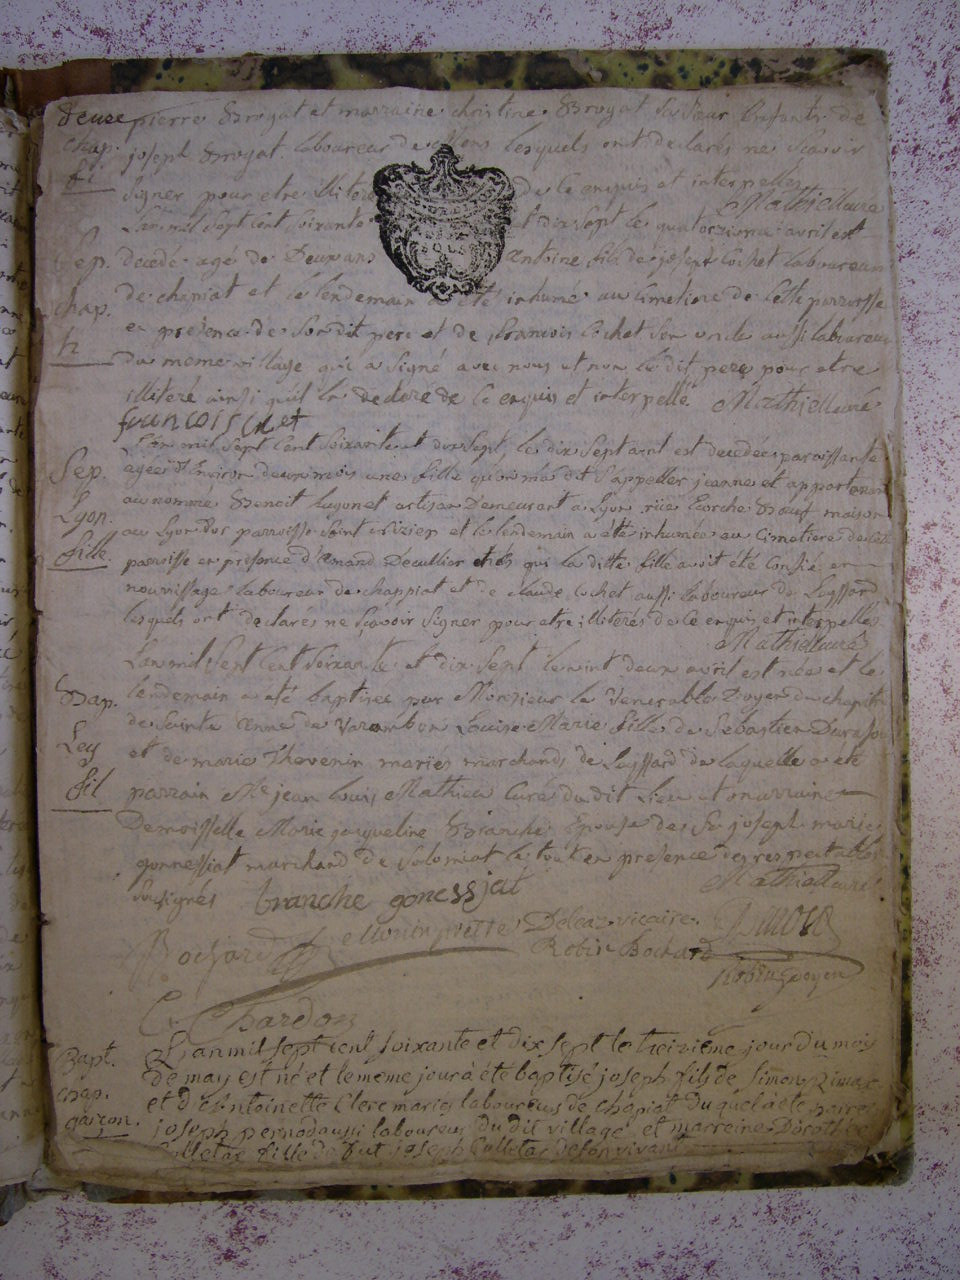 pierre Brogat et marraine christine Brogat sa sœur Enfants de
chap. joseph Brogat laboureur de lesquels ont declarés ne scavoir
signer pour etre illiteré de ce enquis et interpellés
Mathieu curé
Lan mil sept cent soixante et dix sept le quatorzieme avril est
Sep. decedé agé de Deux ans Antoine fils de joseph Cochet laboureur
chap. de chapiat et le lendemain a eté inhumé au Cimetiere de cette parroisse
en presence de son dit pere et de francois Cochet son oncle aussi laboureur
du meme village qui a signé avec nous et non le dit pere pour etre
illiteré ainsi qu'il l'a declaré de ce enquis et interpellé. Mathieu curé
francois
Lan mil sept cent soixante et dix sept, le dix sept avril est decedée
Sep. agée d'Environ deux mois une fille qu'on m'a dit s'appeller jeanne et appartenir
au nomme Benoit artisan Demeurant a Lyon rue Ecorche Bœuf maison
Lyon. au Lyon d'or parroisse saint nizier et le lendemain a été inhumée au Cimetiere de cette
fille parroisse en presence d'Emand Decullier chés qui la ditte fille avoit été confié en
nourrissage laboureur de chappiat et de claude Cochet aussi laboureur de Leyssard
lesquels ont declarés ne scavoir signer pour etre illiterés de ce enquis et interpellés
Mathieu curé
Lan mil sept cent soixante et dix sept le vint deux avril est née et le
Bap. lendemain a eté baptisée par Monsieur le Venerable Doyen du chapitre
de Sainte Anne de Varambon Louise Marie fille de Sebastien
Ley et de marie Thevenin mariés marchands de Leyssard de laquelle a été
fil parrain Mre jean Louis Mathieu Curé du dit Lieu et marraine
Demoisselle Marie jacqueline Branche Epouse de Sr joseph marie
gonnessiat marchand de Solomiat le tout en presence des respectables
soussignés branche gonessiat Mathieu curé
Bochard Morin prettre Deleaz vicaire.
Robin Bochard
Robin Doyen
C. Chardon
Bapt. L'an mil sept cent soixante et dix sept le treizieme jour du mois
chap. de may est né et le meme jour a été baptisé joseph fils de Simon
garçon. et d'Antoinette Clerc mariés laboureurs de chapiat duquel a ete parrein
joseph pernod aussi laboureur du dit village et marreine Dorothée
Colletaz fille de fut joseph Colletaz de son vivant